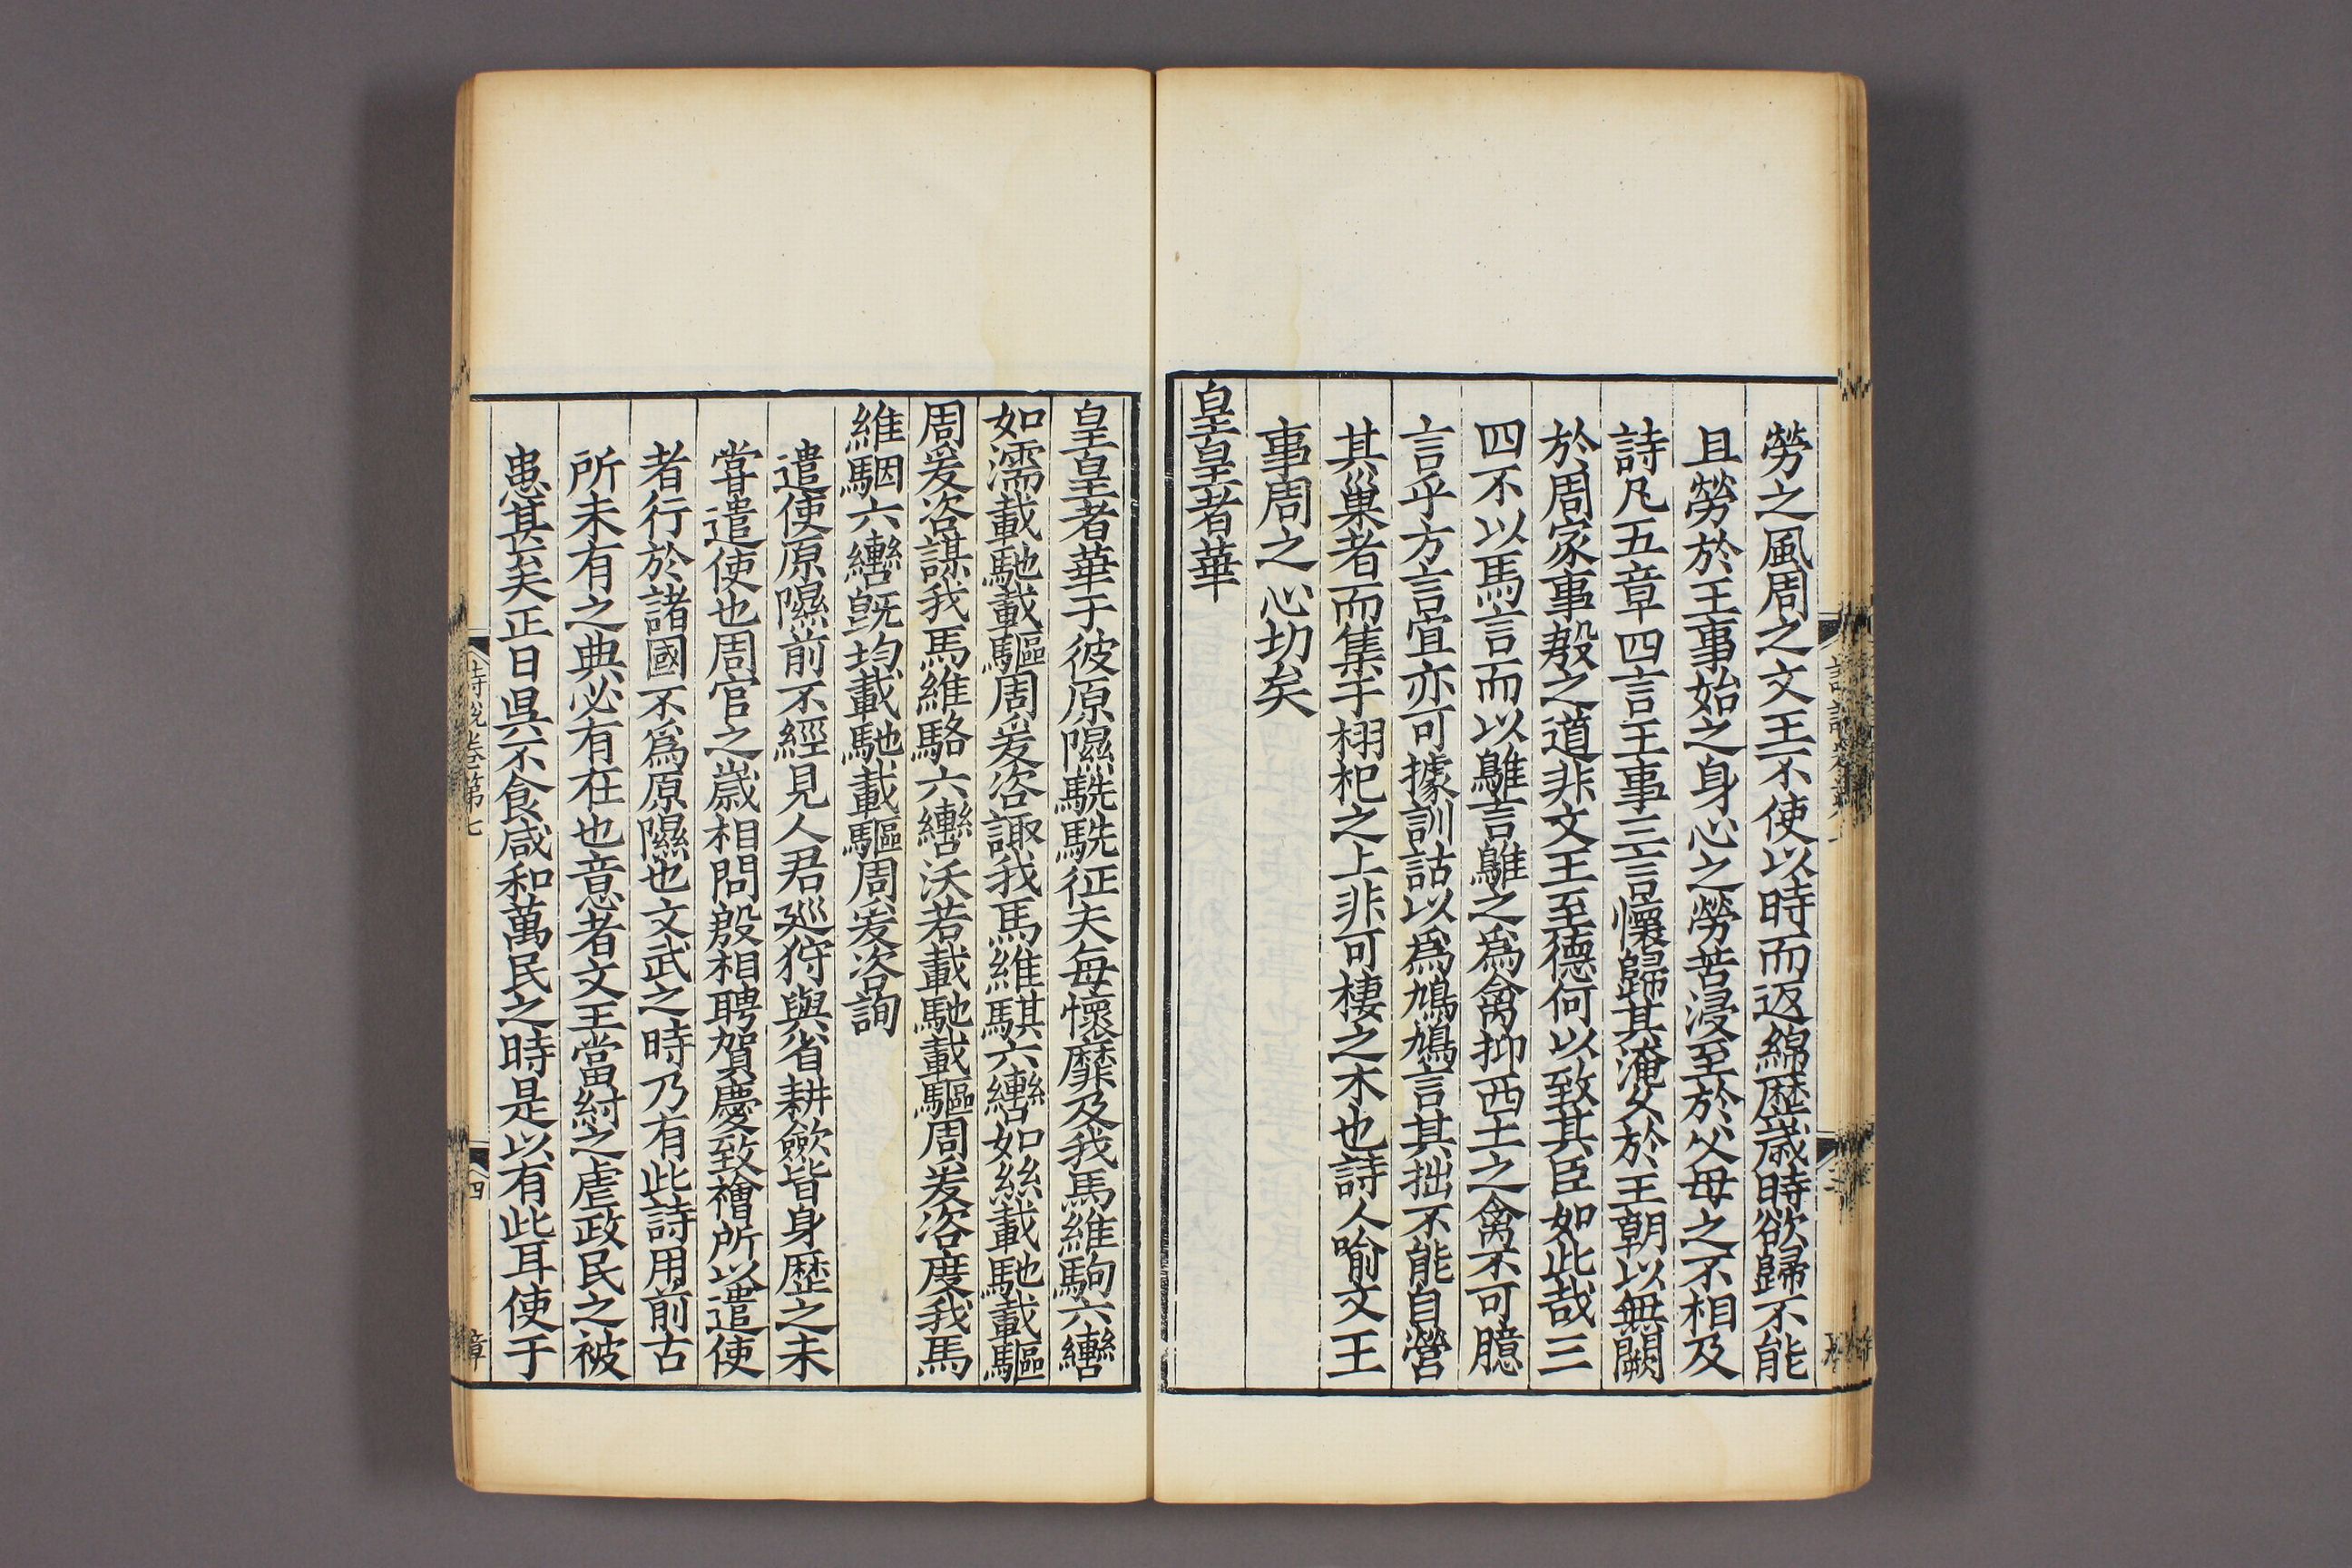 勞之風周之文王不使以時而返綿歷歲時欲歸不能
且勞於王事始之身心之勞苦浸至於父母之不相及
詩凡五章四言王事三言懷歸其淹久於王朝以無闕
於周家事殷之道非文王至德何以致其臣如此哉三
四不以馬言而以鵻言鵻之爲禽抑西土之禽不可臆
言乎方言宜亦可據訓詁以爲鳩鳩言其拙不能自營
其巢者而集于栩杞之上非可棲之木也詩人喻文王
事周之心切矣
皇皇者華
皇皇者華于彼原隰駪駪征夫每懷靡及我馬維駒六轡
如濡載馳載驅周爰咨諏我馬維騏六轡如絲載馳載驅
周爰咨謀我馬維駱六轡沃若載馳載驅周爰咨度我馬
維駰六轡旣均載馳載驅周爰咨詢
遣使原隰前不經見人君廵狩與省耕歛皆身歷之未
甞遣使也周官之嵗相問殷相聘賀慶致禬所以遣使
者行於諸國不爲原隰也文武之時乃有此詩用前古
所未有之典必有在也意者文王當紂之虐政民之被
患甚矣正日昃不食咸和萬民之時是以有此耳使于
詩說卷第七
四
章